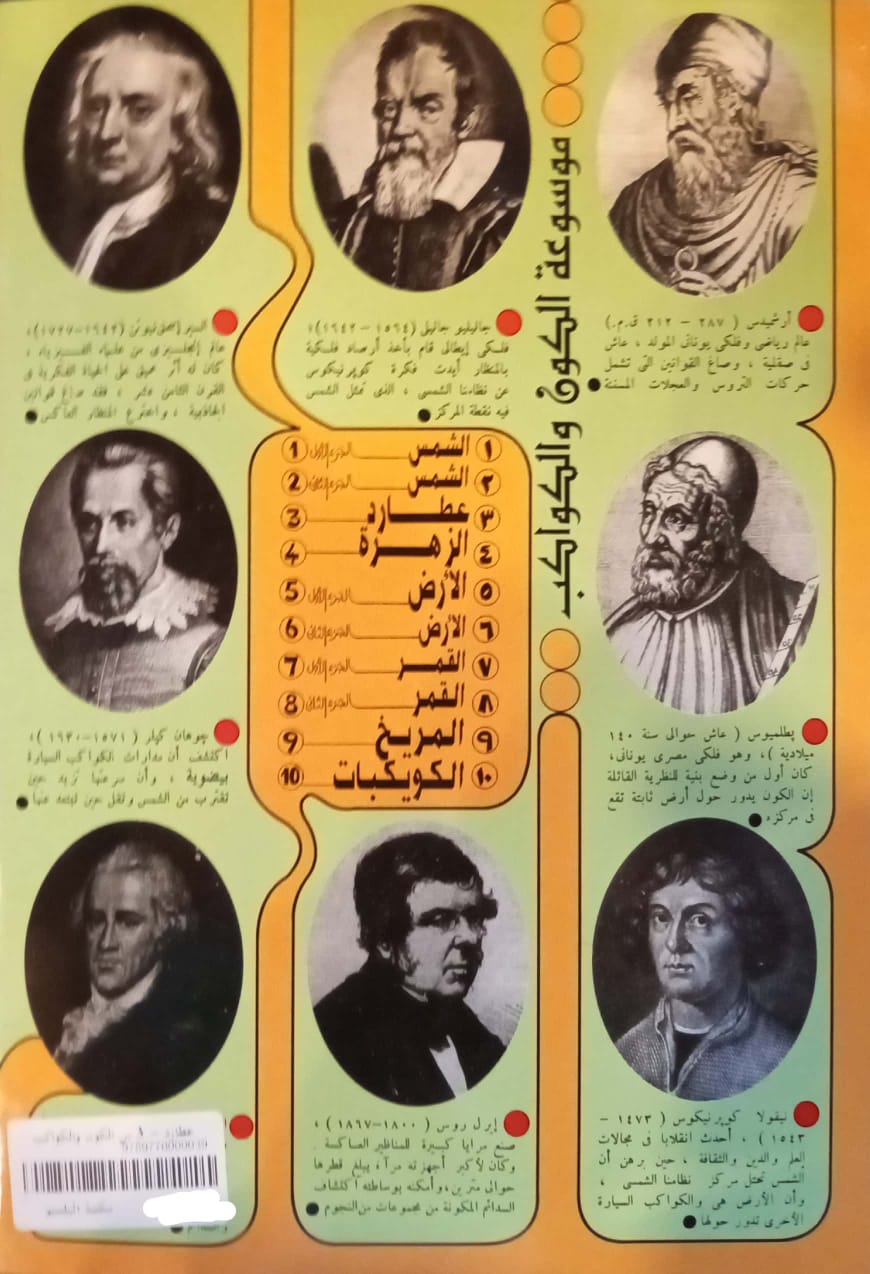 موسوعة الكون والكواكب
أرشيدس ( ٢٨٧ - ٢١٢ ق.م.)
عالم رياضى وفلكى يونانى المولد ، عاش
فى صقلية ، وصاغ القوانين التى تشمل
حركات التروس والعجلات المسننة
جاليليو جاليل ( ١٥٦٤ - ١٦٤٢ )؛
فلكى إيطالى قام بأخذ أرصاد فلكية
بالمنظار أيدت فكرة كوپرنيكوس
عن نظامنا الشمسى ، الذى تمثل الشمس
فيه نقطة المركز
السير إسحق نيوتن (١٦٤٢-١٧٢٧)؛
عالم إنجليزى من علماء الفيزياء ،
كان له أثر عميق على الحياة الفكرية فى
القرن الثامن عشر ، فقد صاغ قوانين
الجاذبية ، واخترع المنظار العاكس
① الشمس الجزء الأول ١
② الشمس الجزء الثانى ٢
③ عطارد ٣
④ الزهرة ٤
⑤ الأرض الجزء الأول ٥
⑥ الأرض الجزء الثانى ٦
⑦ القمر الجزء الأول ٧
⑧ القمر الجزء الثانى ٨
⑨ المريخ ٩
⑩ الكويكبات ١٠
بطلميوس ( عاش حوالى سنة ١٤٠
ميلادية )، وهو فلكى مصرى يونانى،
كان أول من وضع بنية للنظرية القائلة
إن الكون يدور حول أرض ثابتة تقع
فى مركزه
چوهان كپلر ( ١٥٧١-١٦٣٠ )؛
اكتشف أن مدارات الكواكب السيارة
بيضوية ، وأن سرعتها تزيد حين
تقترب من الشمس وتقل حين تبتعد عنها
نيقولا كوپرنيكوس ( ١٤٧٣ -
١٥٤٣ ) ، أحدث انقلابا فى مجالات
العلم والدين والثقافة ، حين برهن أن
الشمس تحتل مركز نظامنا الشمسى ،
وأن الأرض هى والكواكب السيارة
الأخرى تدور حولها
إيرل روس ( ١٨٠٠-١٨٦٧ ) ،
صنع مرايا كبيرة للمناظير العاكسة .
وكان لأكبر أجهزته مرآة يبلغ قطرها
حوالى مترين، وأمكنه بوساطته اكتشاف
السدائم المكونة من مجموعات من النجوم
عطارد - الكون والكواكب
9789770000019
مكتبة